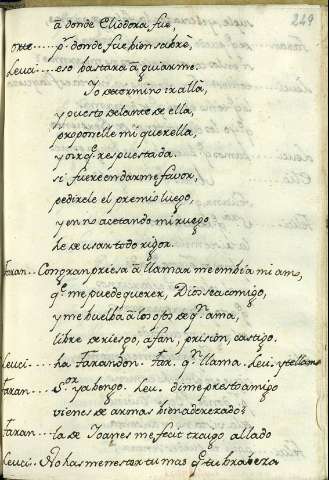 249
a donde Eliodora fue,
orte.... pr donde fue bien sabrè,
Leuci.... eso bastara a guiarme.
Yo determino ir alla,
y puesto delante de ella,
proponelle mi querella,
y oir qe respuesta da.
si fuere en darme favor,
pedirele el premio luego,
y en no acetando mi ruego
he de usar todo rigor.
Faran.... Con gran priesa a llamar me embia mi amo,
qe me puede querer, Dios sea comigo,
y me buelba a los ojos de qn ama,
libre de riesgo, afan, prision, castigo.
Leuci.... ha Farandon. Far. qn llama. Leu. yo te llamo
Faran.... Sor. ya bengo. Leu. dime presto amigo
vienes de armas bien aderezado?
Faran.... la de Joanes me fecit traygo al lado
Leuci.... No has menester tu mas qe tu braveza